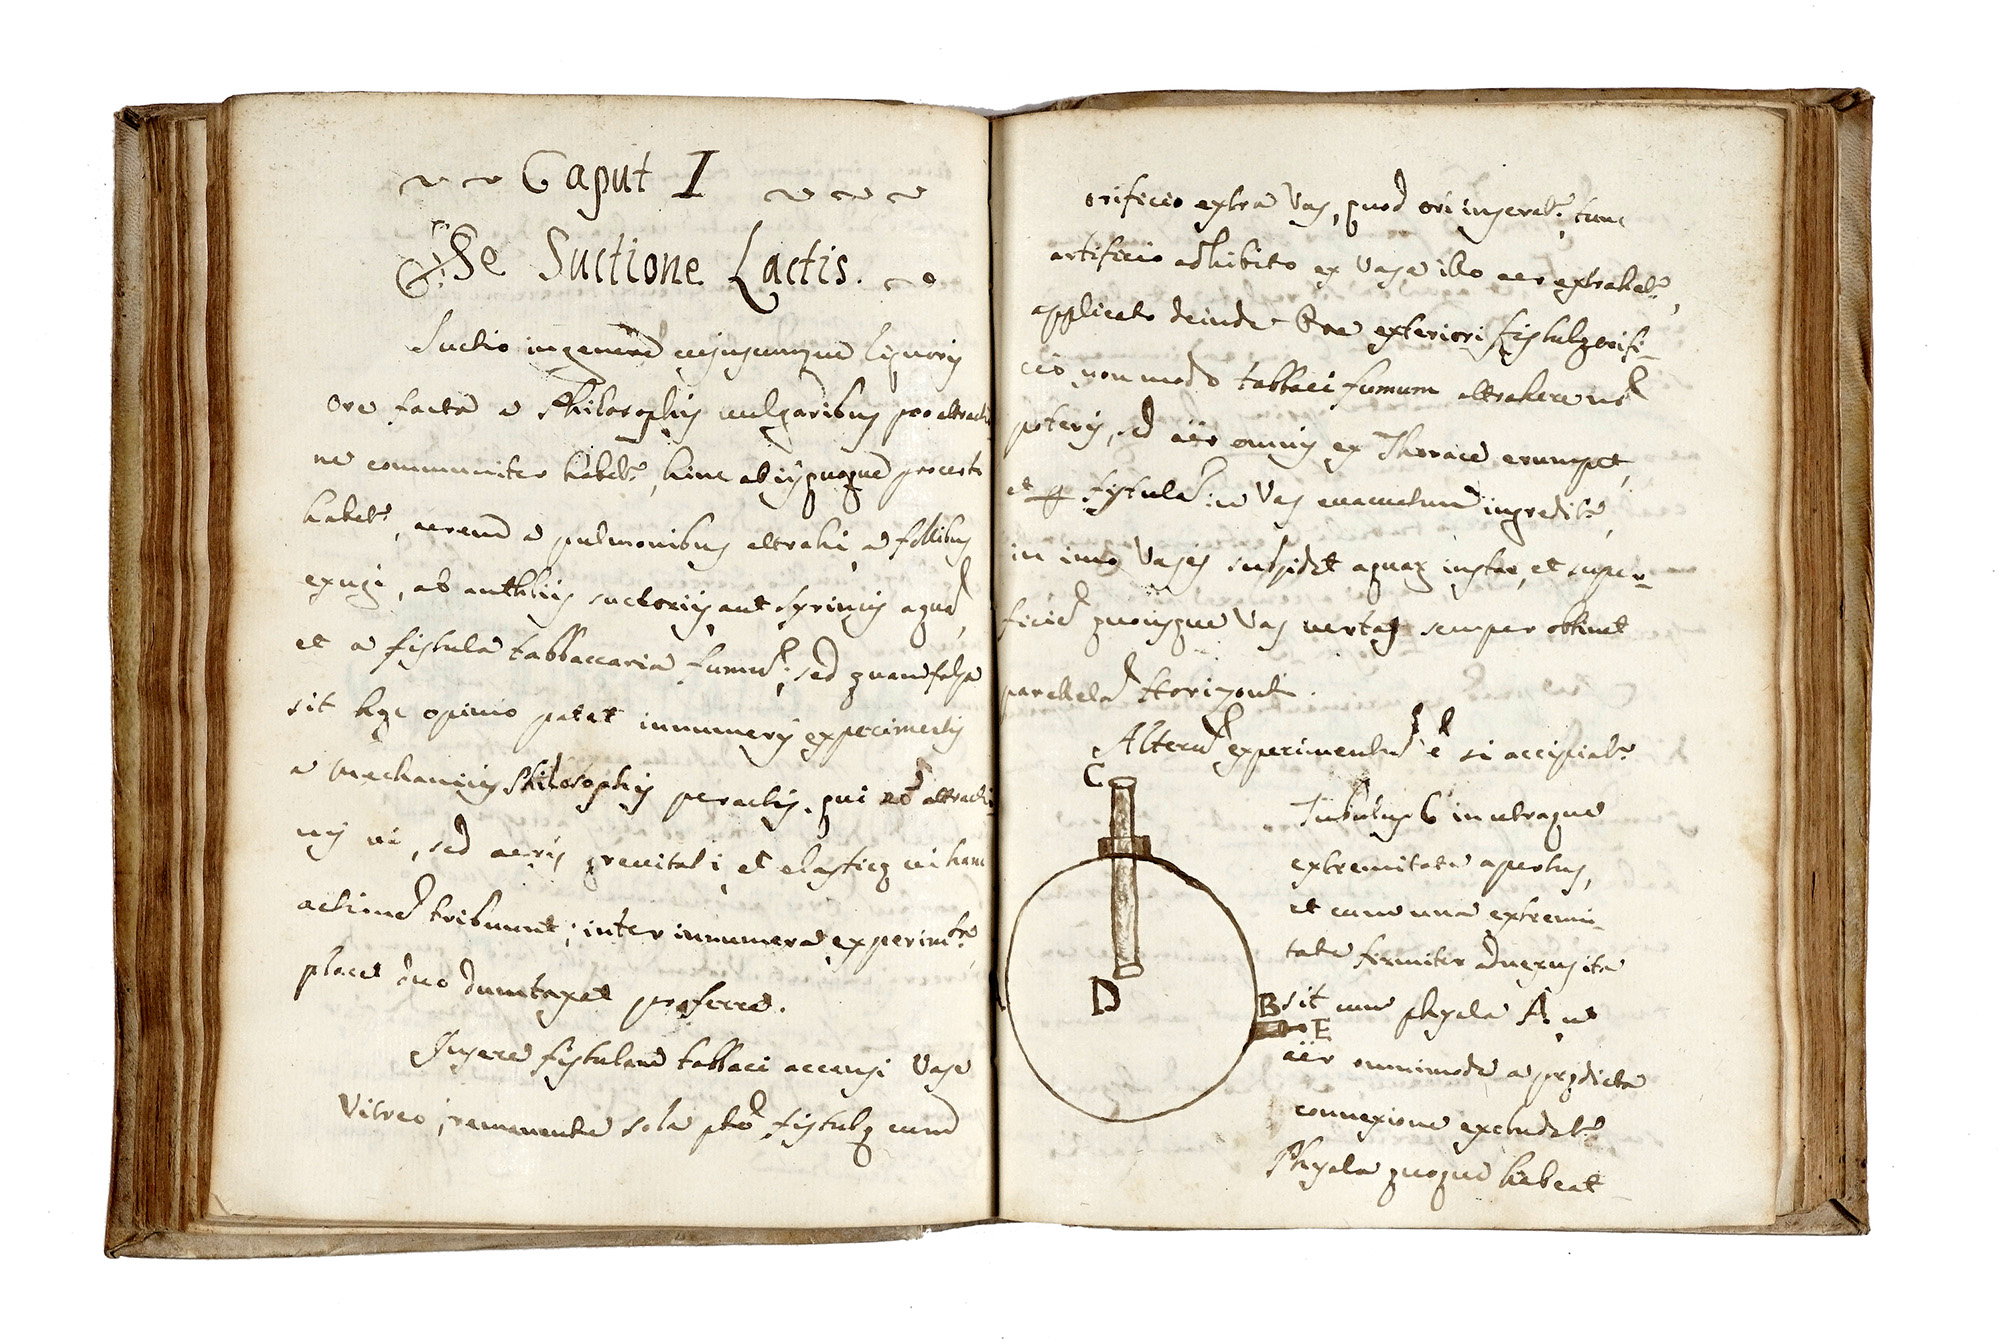 Caput I
De Suctione Lactis.
Suctio in genere cujuscumque liquoris
ore facta a Philosophis vulgaribus pro attractio
ne communiter habetr, hinc ab ijs quoque pro certo
habetr, aerem a pulmonibus attrahi, a follibus
exugi, ab anthlijs suctorijs aut syrincis aquã,
et a fistula tabbaccaria fumũ; sed quam falsa
sit hęc opinio patet innumeris experimentis
a Mechanicis Philosophis peractis, qui nõ attractio
nis vi, sed aeris gravitati, et elasticę vi hanc
actionẽ tribuunt; inter innumera experimta,
placet duo dumtaxat proferre.
Insere fistulam tabbaci accensi Vase
Vitreo, remanente sola pte fistulę cum
orificio extra Vas, quod ori inseratr, tunc
artificio adhibito ex Vase illo aer extrahatr,
applicato deinde Ore exteriori fistulę orifi-
cio non modo tabbaci fumum attrahere nõ
poteris, sed aër omnis ex Thorace erumpet,
et p fistulã in Vas evacuatum ingreditr,
in imo Vasis subsidet aquaę instar, et super-
ficiẽ quousque Vas vertas semper obtinet
parallelã Horizonti.
Alterũ experimentũ ẽ si accipiatr
C
Tubulus C in utraque
extremitate apertus,
et cum una extremi-
tate firmiter adnexus ita
D
B
sit cum phyala A, ut
E
aër omnimode a prędicta
connexione excludatr
Phyala quoque habeat